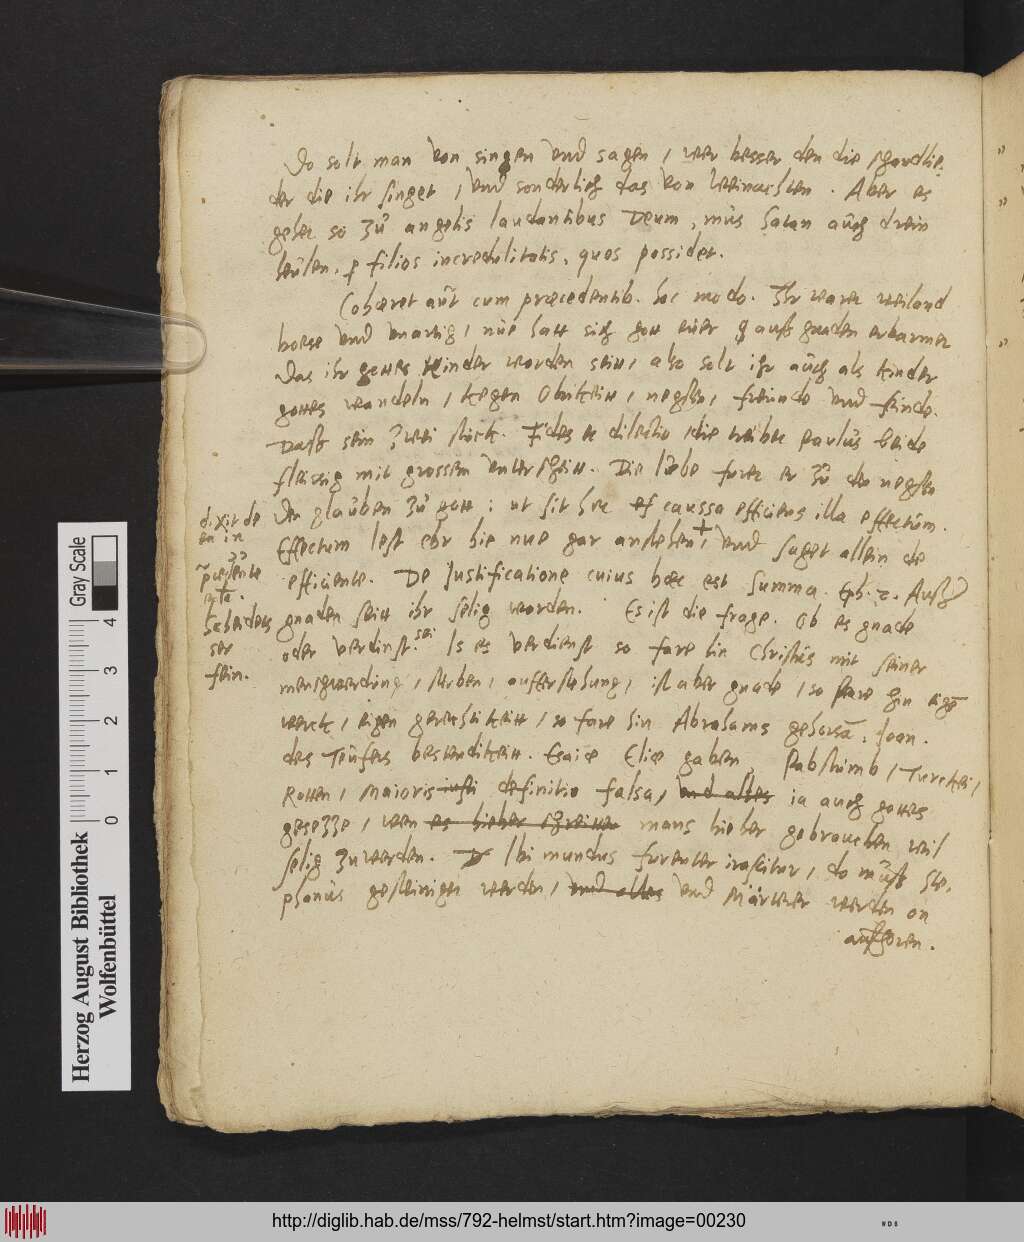 Do solt man von singen und sagen, wer besser den die schandlie-
der die ihr singet, und sonderlich das von Weinachten. Aber es
gehet so zů angelis laudantibus Deum, můs Satan aůch drein
heůlen, p filios incredulitatis, quos possidet.
Cohæret aůt cum præcedentib. hoc modo. Ihr waret weiland
boese und unartig, nůe hatt sich gott euer auß gnaden erbarmet
Das ihr gottes kinder worden seitt, also solt ihr aůch als kinder
gottes wandeln, kegen Obrikeitt, negsten, freůnde und feinde.
Daß sein zwei stůck. Fides et dilectio die treibet Paulůs beide
fleissig mit grossem unterscheitt. Die liebe furet er zů den negsten
Den glaůben zů gott: ut sit hec caussa efficiens illa effectům.
Effectum lest ehr hie nue gar anstehen, und saget allein de
efficiente. De Justificatione cuius hæc est summa. Eph. 2. Auß
gnaden seitt ihr selig worden. Es ist die frage. Ob es gnade
oder verdinst sei. Is es verdienst so fare hin Christůs mit seiner
menschwerdůng, sterben, aufferstehung, ist aber gnade, so fare hin eigē
werck, eigen gerechtikeitt, so fare hin Abrahams gehorsā, Joan.
des Teůfers bestendikeitt. Esaiæ Eliæ gaben, Pabstůmb, Turckei,
Rotten, Maioris iusti definitio falsa, und alles ia auch gottes
gesezze, wen es hieher schreitten mans hieher gebrauchen wil
selig zu werden. Ibi mundus furenter irascitur, do můß Ste-
phanůs gesteiniget werden, und alles und Märterer werden on
auffhoren.
dixit de
præsente
Scheidets
ser
fein.
Herzog August Bibliothek
Wolfenbüttel
Gray Scale
0 1 2 3 4
http://diglib.hab.de/mss/792-helmst/start.htm?image=00230